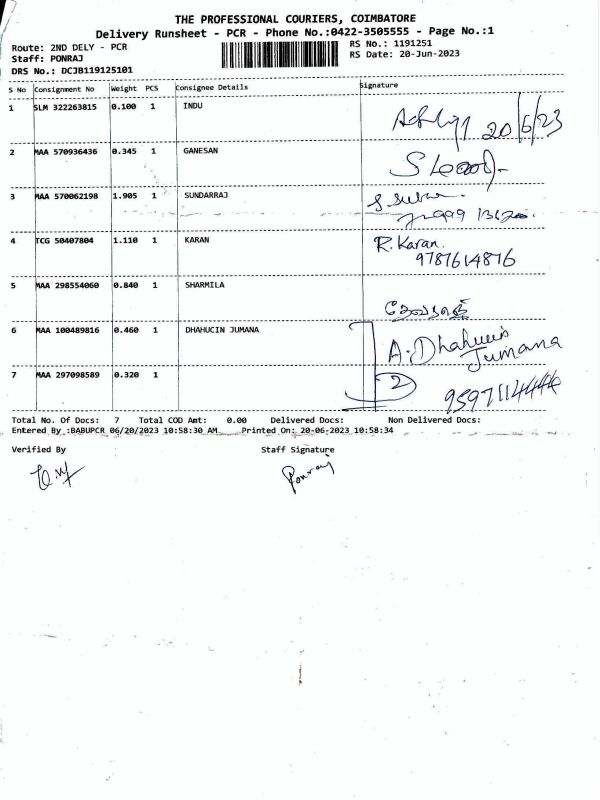 THE PROFESSIONAL COURIERS, COIMBATORE
Delivery Runsheet - PCR - Phone No.:0422-3505555 - Page No.:1
Route: 2ND DELY - PCR
RS No.: 1191251
Staff: PONRAJ
RS Date: 20-Jun-2023
DRS No.: DCJB119125101
S No Consignment No Weight PCS Consignee Details Signature
1 SLM 322263815 0.100 1 INDU
20/6/23
2 MAA 570936436 0.345 1 GANESAN
3 MAA 570062198 1.905 1 SUNDARRAJ
4 TCG 50407804 1.110 1 KARAN R. Karan.
9787614876
5 MAA 298554060 0.840 1 SHARMILA
6 MAA 100489816 0.460 1 DHAHUCIN JUMANA A. Dhahucin
Jumana
7 MAA 297098589 0.320 1 2
Total No. Of Docs: 7 Total COD Amt: 0.00 Delivered Docs: Non Delivered Docs:
Entered By :BABUPCR 06/20/2023 10:58:30 AM Printed On: 20-06-2023 10:58:34
Verified By Staff Signature
Ponraj